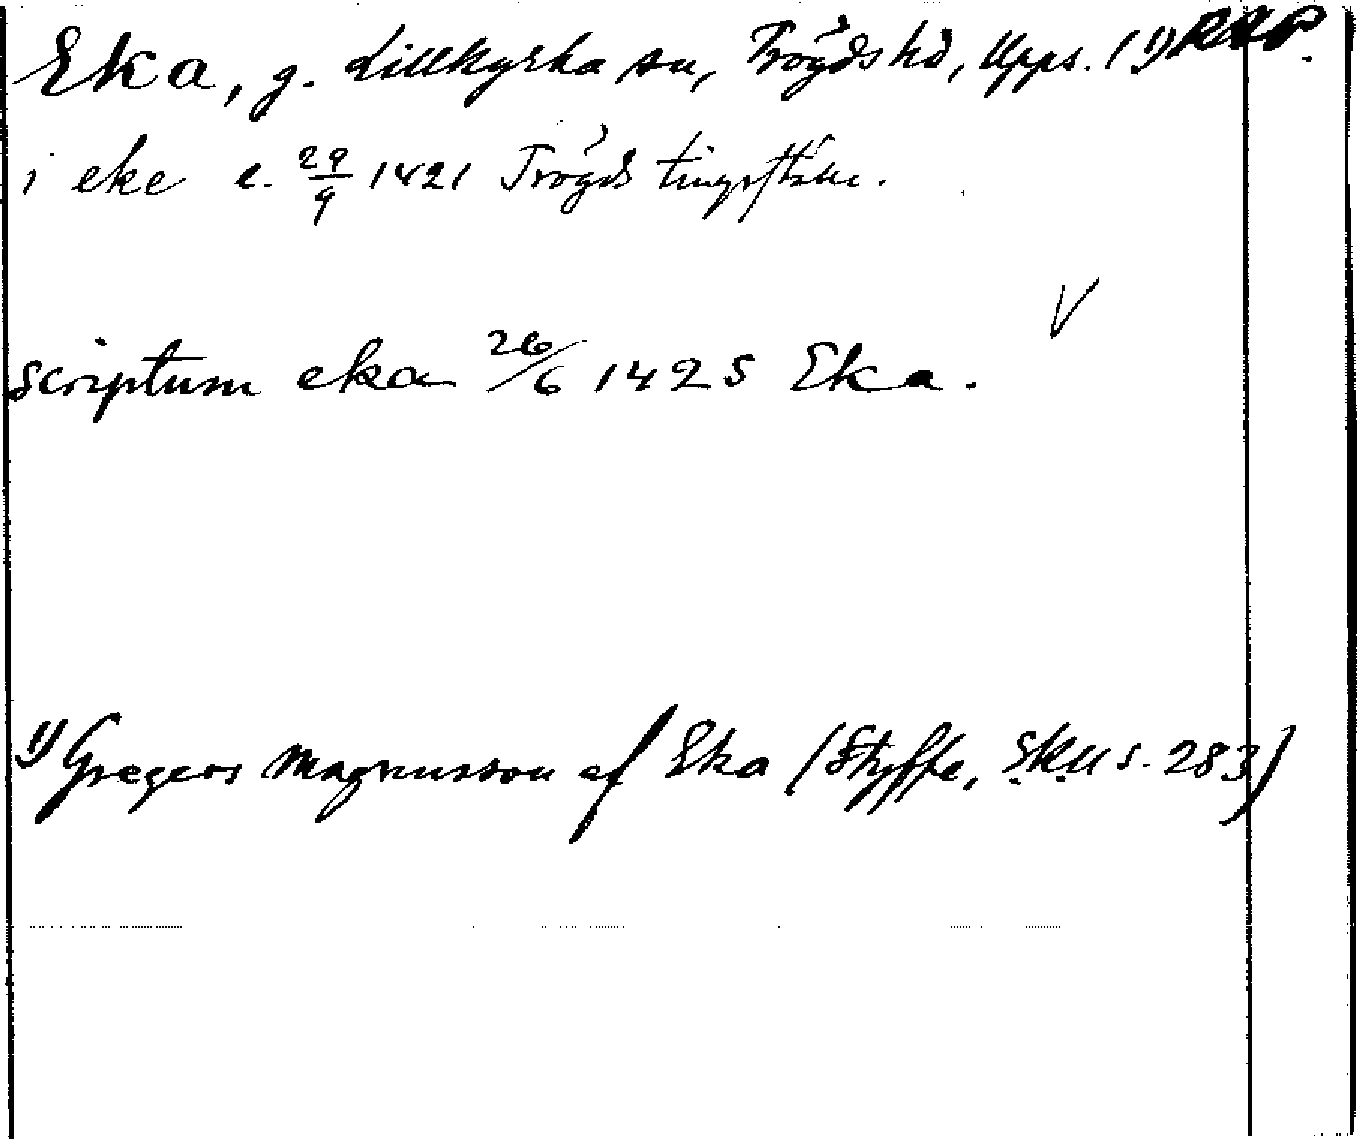 Eka, g. Lillkyrka sn, Trögds hd, Upps. (1) RAP.
i eke c. 29/9 1421 Trögds tingsställe.
V
scriptum eka 26/6 1425 Eka.
1) Gregers Magnusson af Eka (Styffe, SKU s. 283)